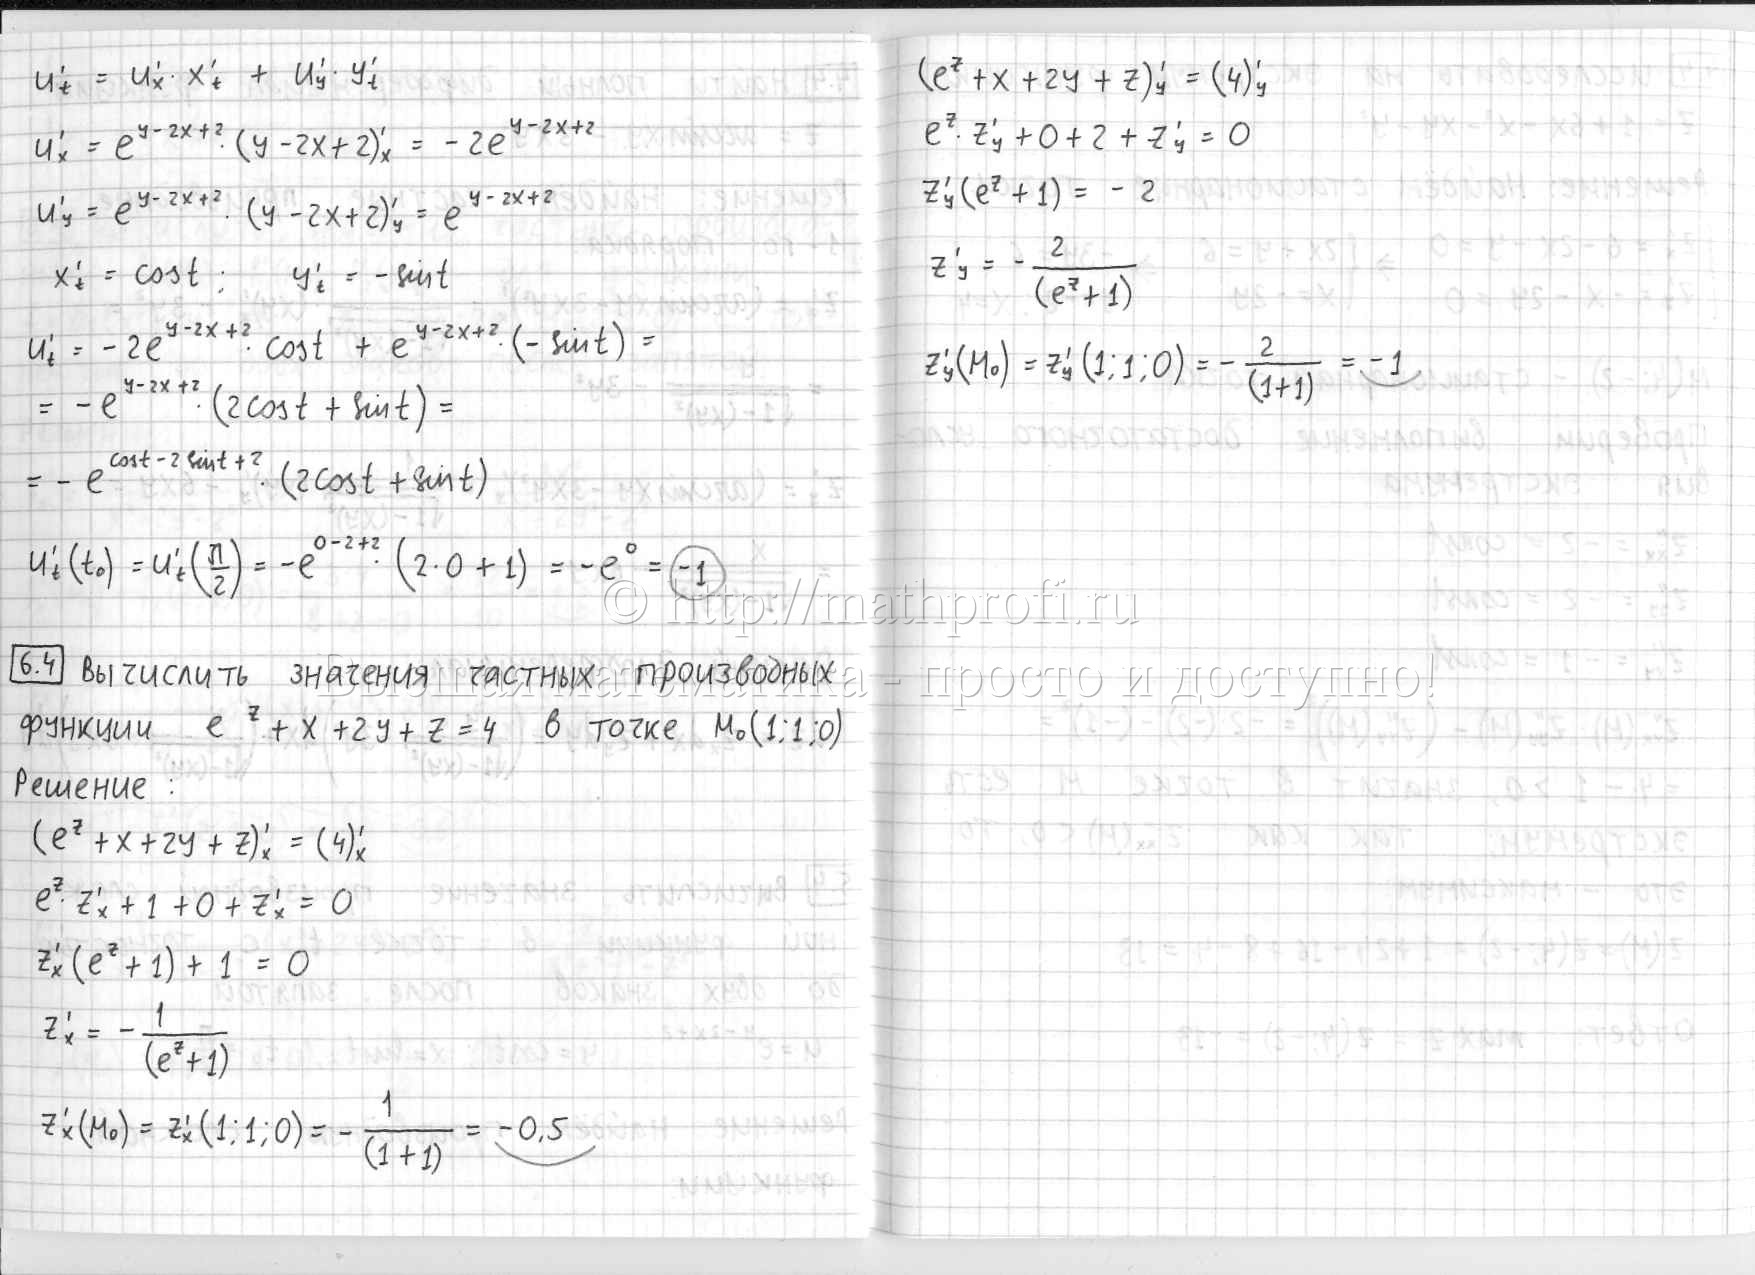 u't = u'x · x't + u'y · y't
u'x = e^(y-2x+2) · (y-2x+2)'x = -2e^(y-2x+2)
u'y = e^(y-2x+2) · (y-2x+2)'y = e^(y-2x+2)
x't = cost ; y't = -sint
u't = -2e^(y-2x+2) · cost + e^(y-2x+2) · (-sint) =
= -e^(y-2x+2) · (2cost + sint) =
= -e^(cost-2sint+2) · (2cost + sint)
u't(t₀) = u't(π/2) = -e^(0-2+2) · (2·0+1) = -e^0 = -1
6.4 Вычислить значения частных производных
функции e^z + x + 2y + z = 4 в точке M₀(1;1;0)
Решение :
(e^z + x + 2y + z)'x = (4)'x
e^z · z'x + 1 + 0 + z'x = 0
z'x(e^z + 1) + 1 = 0
z'x = - 1/(e^z+1)
z'x(M₀) = z'x(1;1;0) = - 1/(1+1) = -0,5
(e^z + x + 2y + z)'y = (4)'y
e^z · z'y + 0 + 2 + z'y = 0
z'y(e^z + 1) = -2
z'y = - 2/(e^z+1)
z'y(M₀) = z'y(1;1;0) = - 2/(1+1) = -1
© http://mathprofi.ru
Высшая математика - просто и доступно!